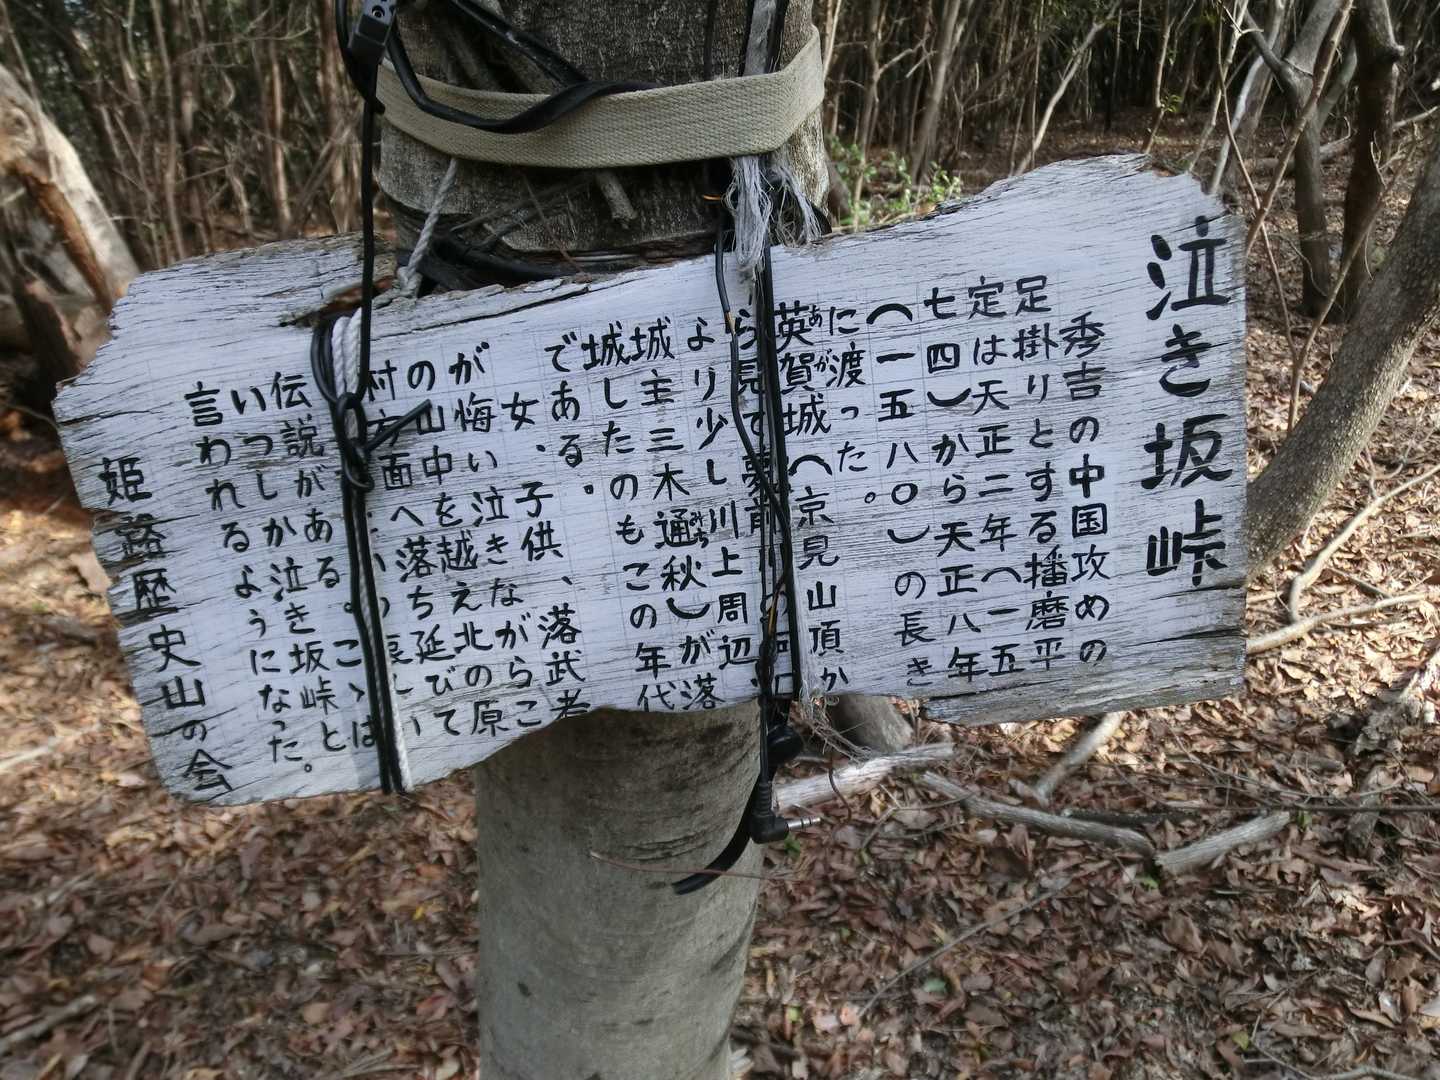 泣き坂峠
秀吉の中国攻めの
足掛りとする播磨平
定は天正二年(一五
七四)から天正八年
(一五八〇)の長き
に渡った。
英賀城(京見山頂か
あが
ら見て夢前川の河口
より少し川上周辺、
城主三木通秋)が落
みち
城したのもこの年代
である。
女、子供、落武者
が悔い泣きながらこ
の山中を越え北の原
村方面へ落ち延びて
伝説がある。こゝは
いつしか泣き坂峠と
言われるようになった。
姫路歴史山の会